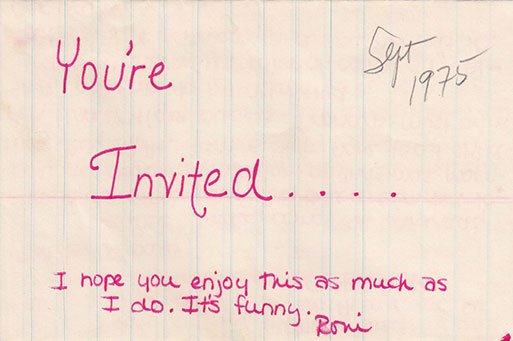 You're
Sept
1975
Invited....
I hope you enjoy this as much as
I do. It's funny.
Roni